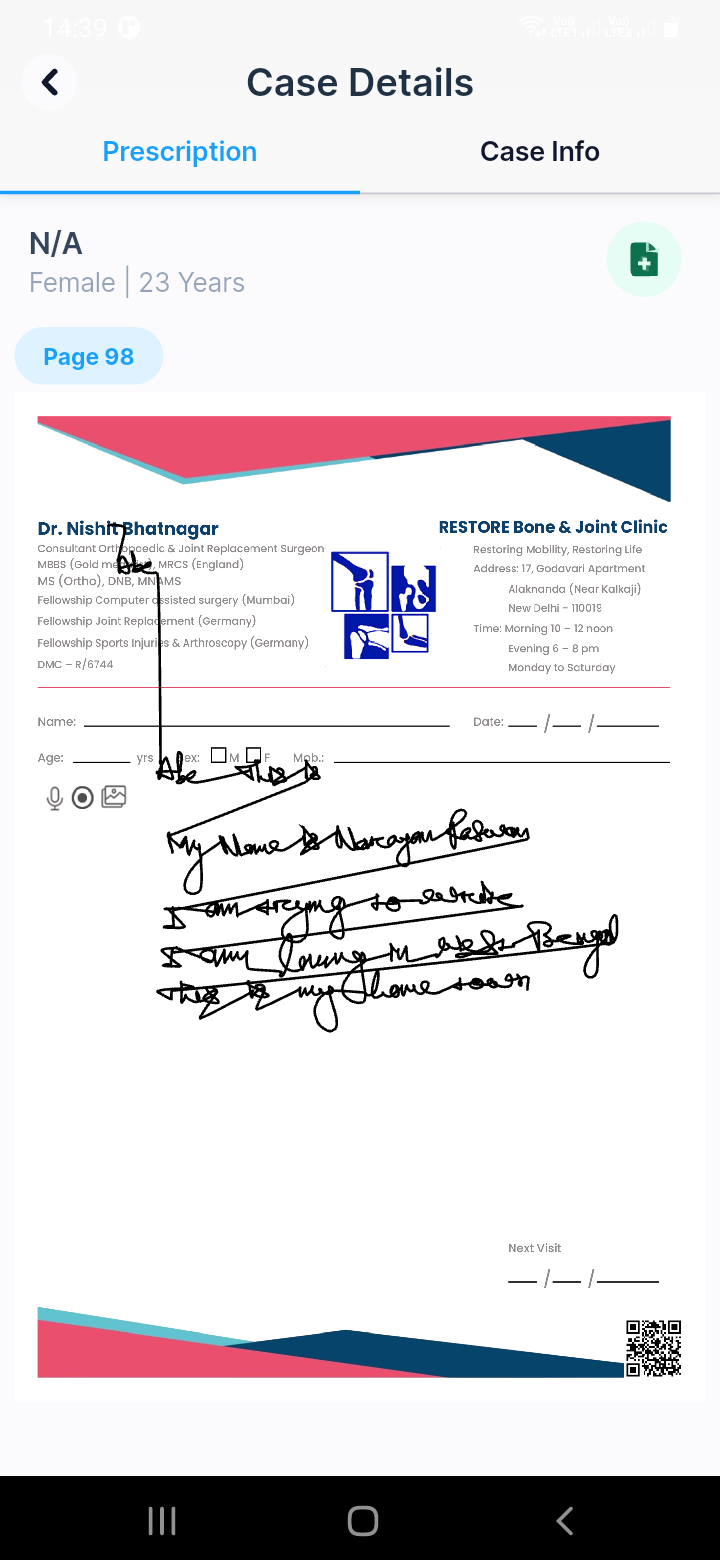 14:39
Vo))
LTE1
Vo))
LTE2
Case Details
Prescription
Case Info
N/A
Female | 23 Years
Page 98
Dr. Nishit Bhatnagar
Consultant Orthopaedic & Joint Replacement Surgeon
MBBS (Gold medalist), MRCS (England)
MS (Ortho), DNB, MNAMS
Fellowship Computer assisted surgery (Mumbai)
Fellowship Joint Replacement (Germany)
Fellowship Sports Injuries & Arthroscopy (Germany)
DMC – R/6744
Abc
RESTORE Bone & Joint Clinic
Restoring Mobility, Restoring Life
Address: 17, Godavari Apartment
Alaknanda (Near Kalkaji)
New Delhi – 110019
Time: Morning 10 – 12 noon
Evening 6 – 8 pm
Monday to Saturday
Name:
Date: / /
Age: yrs Sex: M F Mob.:
Abc This is
My Name is Narayan
I am trying to
I am living in West Bengal
This is my home town
Next Visit
/ /